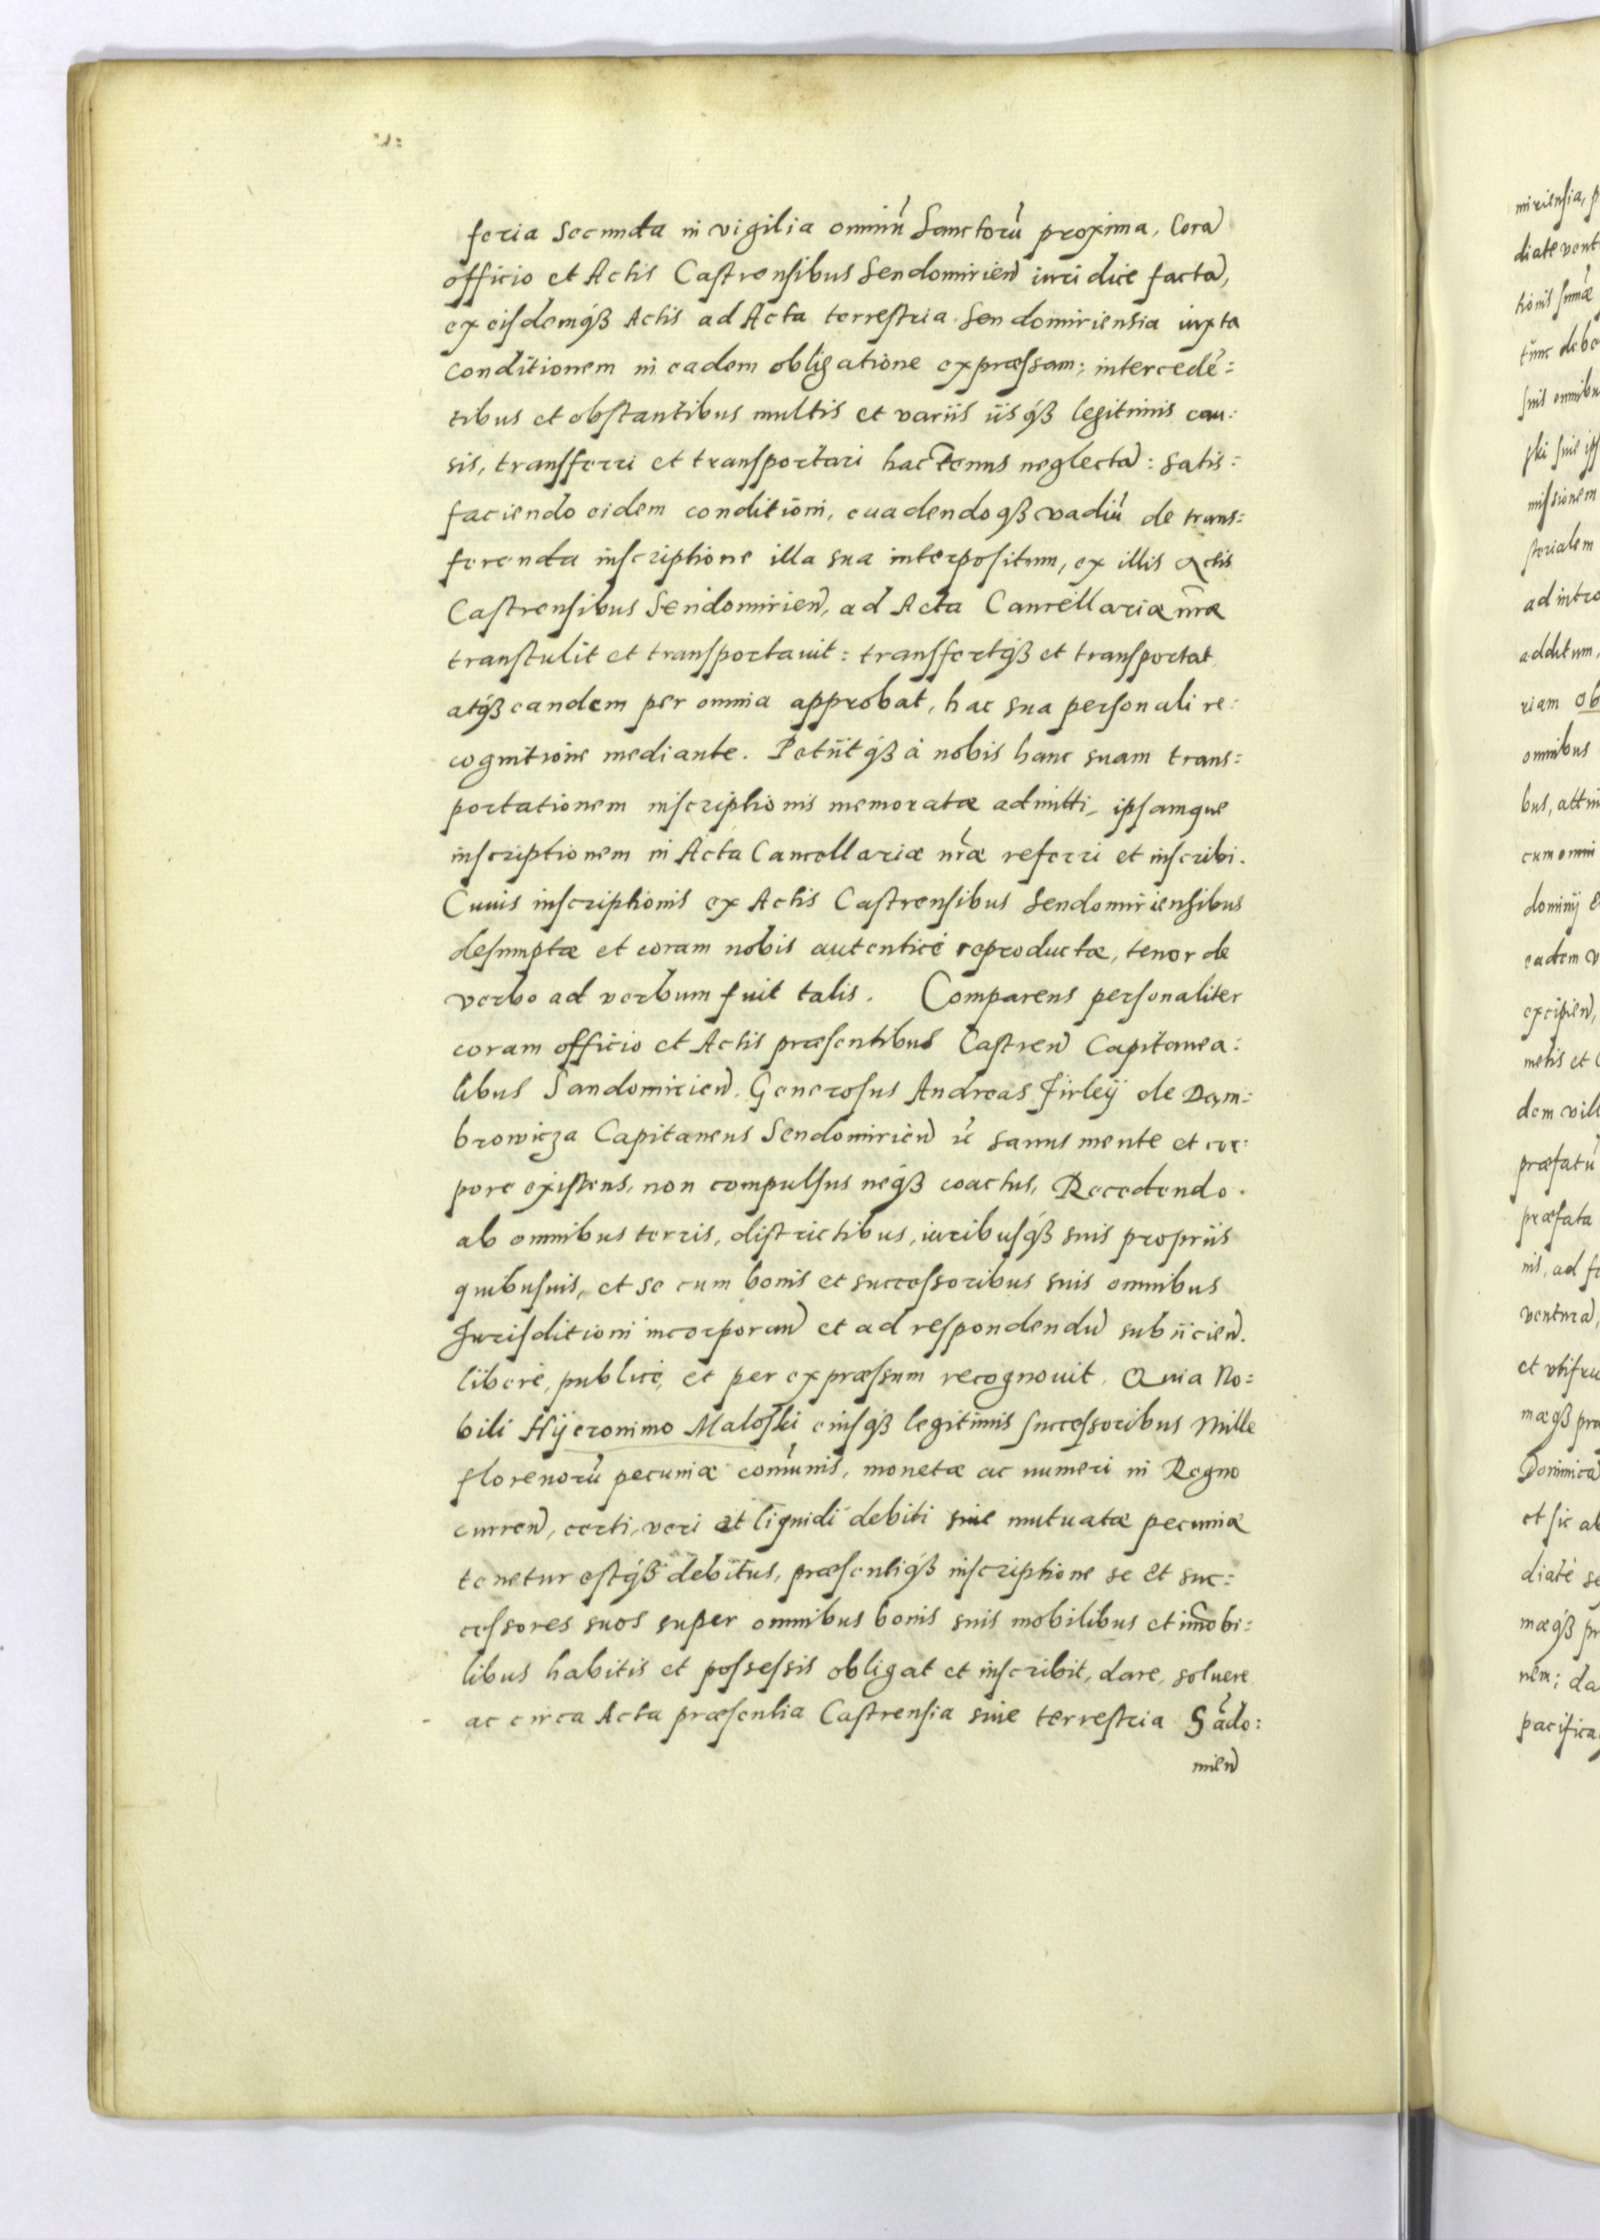 feria Secunda in vigilia omniū Sanctorū proxima, Corā
officio et Actis Castrensibus Sendomirien̄ iuridice factā,
ex eisdemq́ꝫ Actis ad Acta terrestria Sendomiriensia iuxta
conditionem in eadem obligatione expræssam; intercedē:
tibus et obstantibus multis et variis iisq́ꝫ legitimis cau:
sis, transferri et transportari hactenus neglectā: satis:
faciendo eidem conditioni, euadendoq́ꝫ vadiū de trans:
ferenda inscriptione illa sua interpositum, ex illis Actis
Castrensibus Sendomirien̄, ad Acta Cancellariæ nr̄æ
transtulit et transportauit: transfertq́ꝫ et transportat
atq́ꝫ eandem per omnia approbat, hac sua personali re:
cognitione mediante. Petiitq́ꝫ à nobis hanc suam trans:
portationem inscriptionis memoratæ admitti, ipsamque
inscriptionem in Acta Cancellariæ nr̄æ referri et inscribi.
Cuius inscriptionis ex Actis Castrensibus Sendomiriensibus
desumptæ et coram nobis autenticè reproductæ, tenor de
verbo ad verbum fuit talis. Comparens personaliter
coram officio et Actis præsentibus Castren̄ Capitanea:
libus Sandomirien̄. Generosus Andreas Firleÿ de Dam:
browicza Capitaneus Sendomirien̄ ꝛc̄ sanus mente et cor:
pore existens, non compulsus neq́ꝫ coactus, Recedendo
ab omnibus terris, districtibus, iuribusq́ꝫ suis propriis
quibusuis, et se cum bonis et successoribus suis omnibus
Jurisditioni incorporan̄ et ad respondendū subiicien̄.
liberè, publicè, et per expræssum recognouit. Quia No:
bili Hÿeronimo Maloski eiusq́ꝫ legitimis successoribus Mille
florenorū pecuniæ com̄unis, monetæ ac numeri in Regno
curren̄, certi, veri et liquidi debiti siue mutuatæ pecuniæ
tenetur estq́ꝫ debitus, præsentiq́ꝫ inscriptione se et suc:
cessores suos super omnibus bonis suis mobilibus et im̄obi:
libus habitis et possessis obligat et inscribit, dare, soluere
ac circa Acta præsentia Castrensia siue terrestria Sādo:
mien̄
miriensia, p
diate vent
tionis sum̄æ
tūnc debe
suis omnibu
ski siue ips
missionem
sterialem
ad intro
additum,
riam Ob
omnibus
bus, attin
cum omni
dominij e
eadem v
excipien̄,
metis et
dem vill
præfatū
præfata
nis, ad f
venturā,
et vtifru
mæq́ꝫ pra
Dominicā
et sic ab
diatè se
mæq́ꝫ pr
nem; da
pacifica